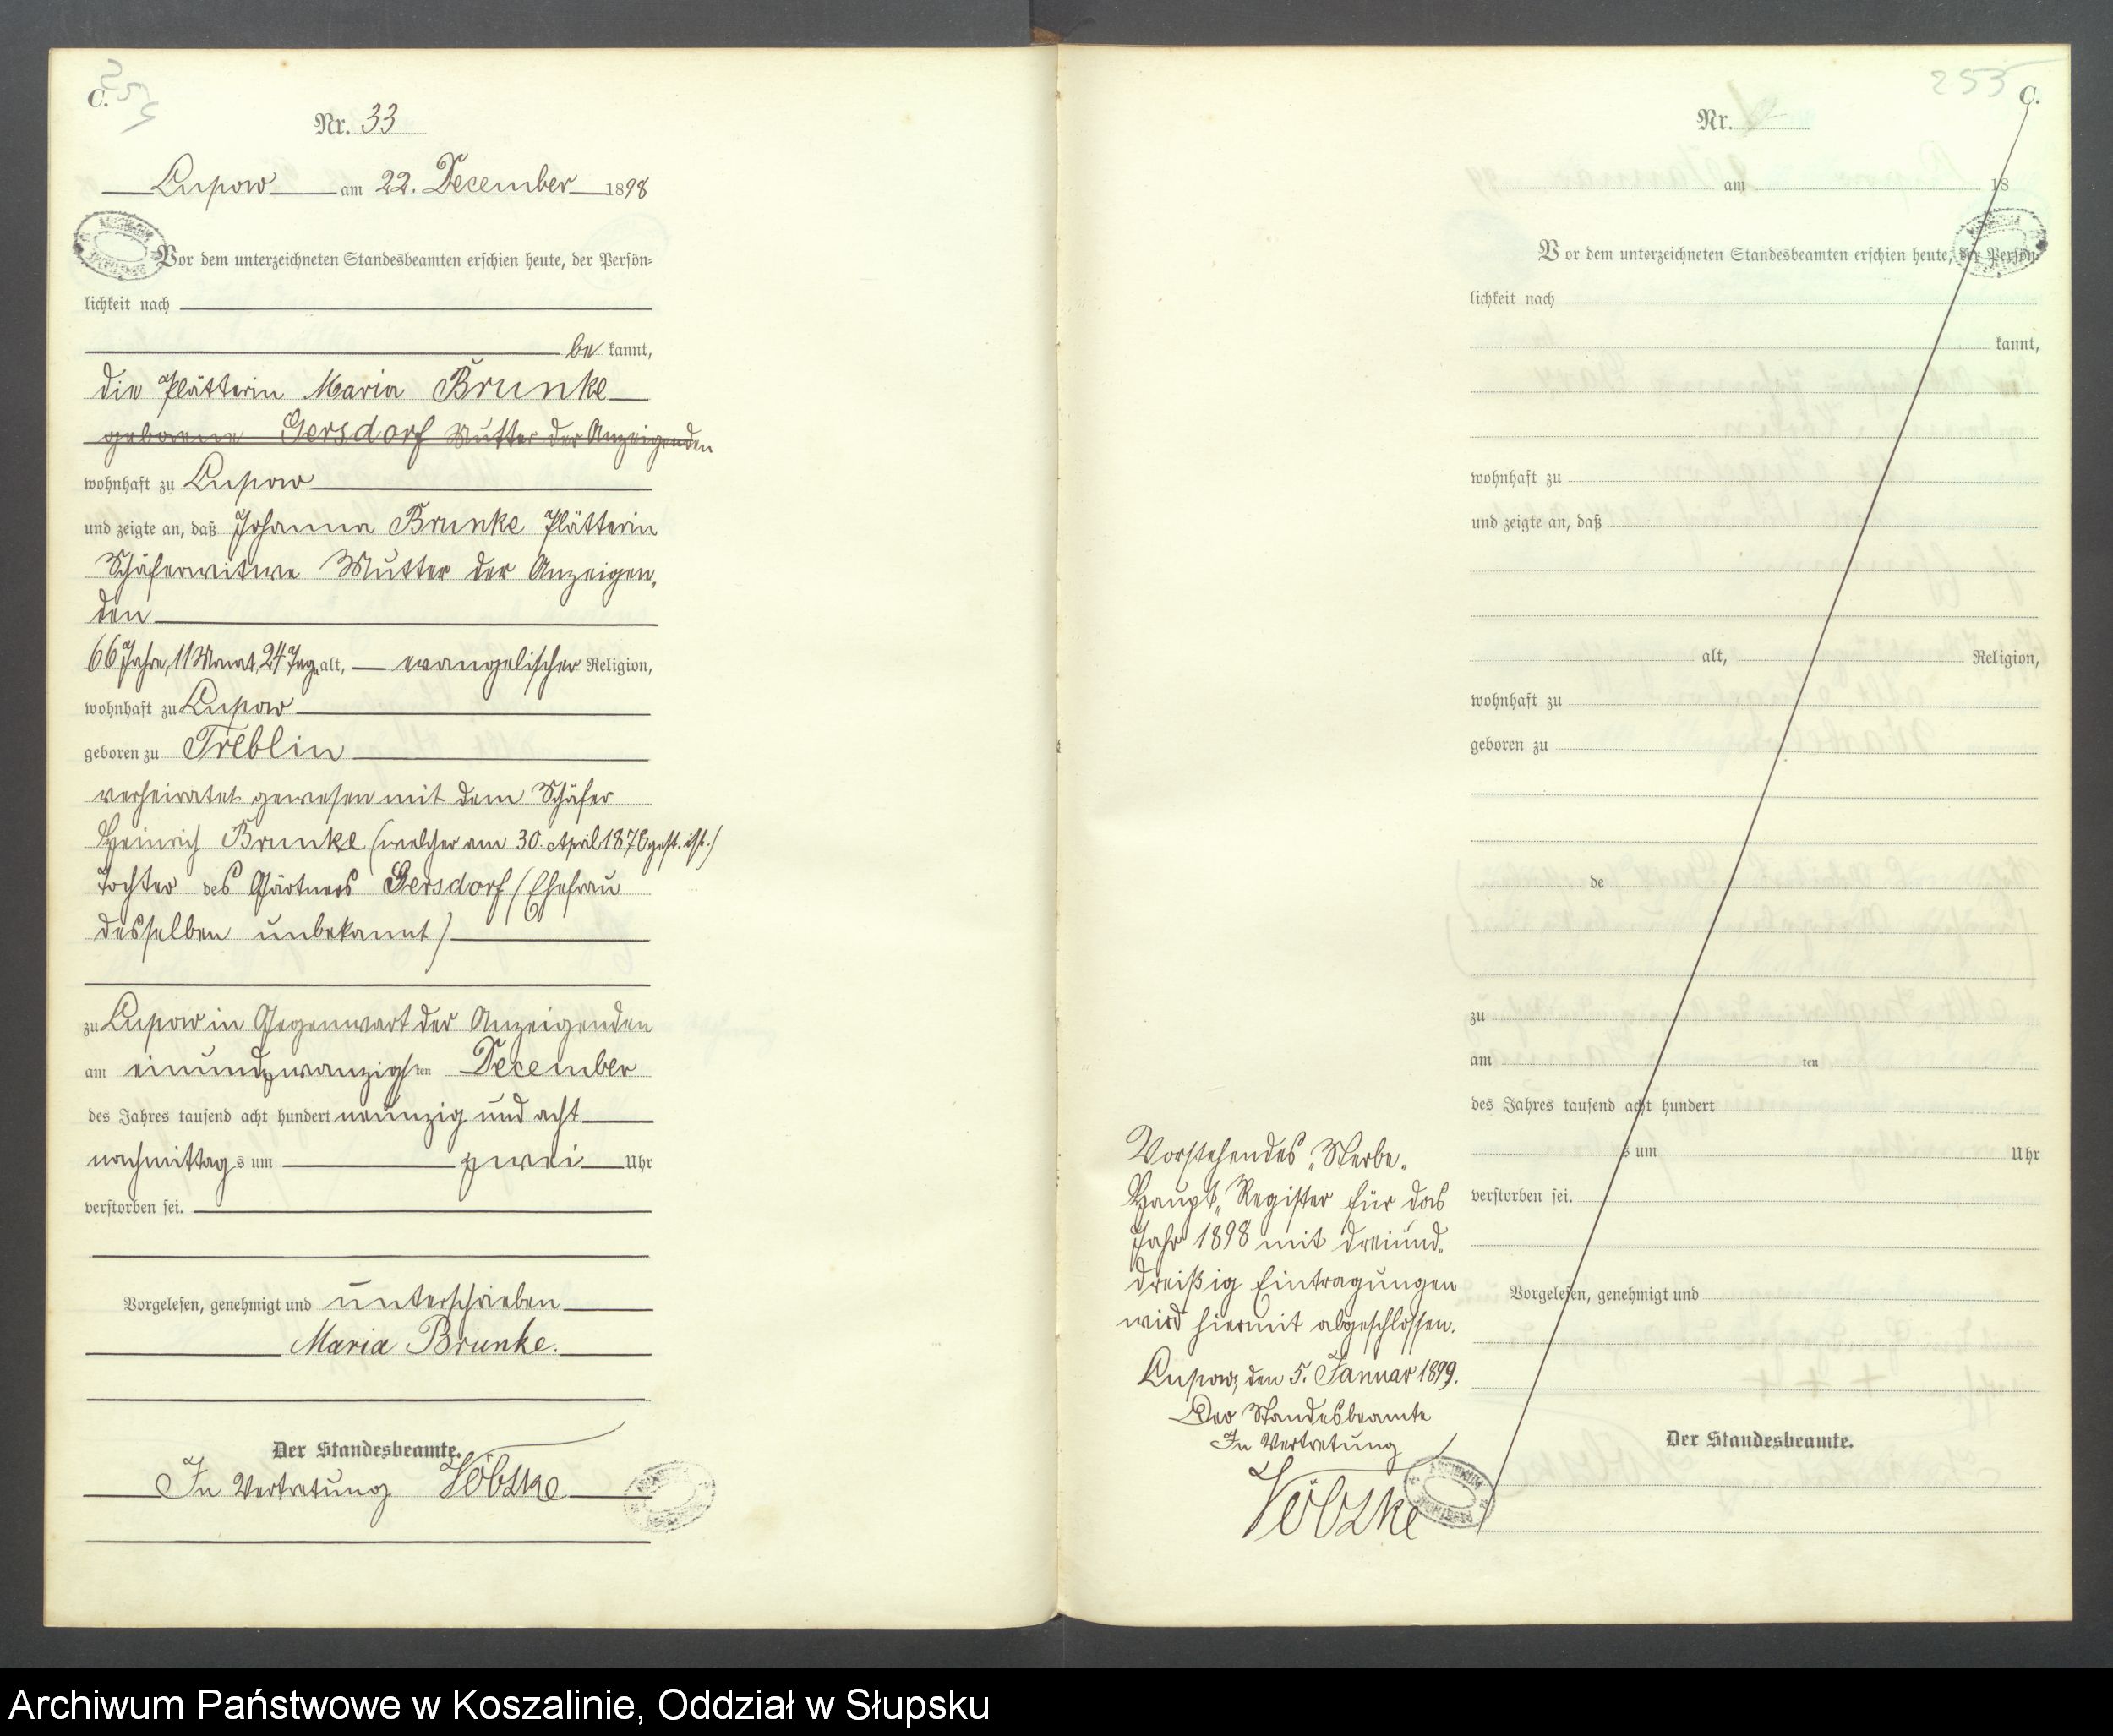 254
C.
Nr. 33
Lupow am 22. December 1898
Vor dem unterzeichneten Standesbeamten erschien heute, der Persön-
lichkeit nach
be kannt,
die Plätterin Maria Brunke
geborene Gersdorf Mutter der Anzeigenden
wohnhaft zu Lupow
und zeigte an, daß Johanna Brunke Plätterin
Schäferwitwe Mutter der Anzeigen„
den
66 Jahre, 11 Monat, 24 Tage alt, evangelischer Religion,
wohnhaft zu Lupow
geboren zu Treblin
verheiratet gewesen mit dem Schäfer
Heinrich Brunke (welcher am 30. April 1878 gest. ist.)
Tochter des Gärtners Gersdorf (Ehefrau
desselben unbekannt)
zu Lupow in Gegenwart der Anzeigenden
am einundzwanzigsten December
des Jahres tausend acht hundert neunzig und acht
nachmittag s um zwei Uhr
verstorben sei.
Vorgelesen, genehmigt und unterschrieben
Maria Brunke.
Der Standesbeamte.
In Vertretung
255
C.
Nr.
am 18
Vor dem unterzeichneten Standesbeamten erschien heute, der Persön-
lichkeit nach
kannt,
wohnhaft zu
und zeigte an, daß
alt, Religion,
wohnhaft zu
geboren zu
de
zu
am ten
des Jahres tausend acht hundert
s um Uhr
verstorben sei.
Vorgelesen, genehmigt und
Der Standesbeamte.
Vorstehendes „Sterbe„
Haupt„ Register für das
Jahr 1898 mit dreiund„
dreißig Eintragungen
wird hiermit abgeschlossen.
Lupow, den 5. Januar 1899.
Der Standesbeamte
In Vertretung
Archiwum Państwowe w Koszalinie, Oddział w Słupsku